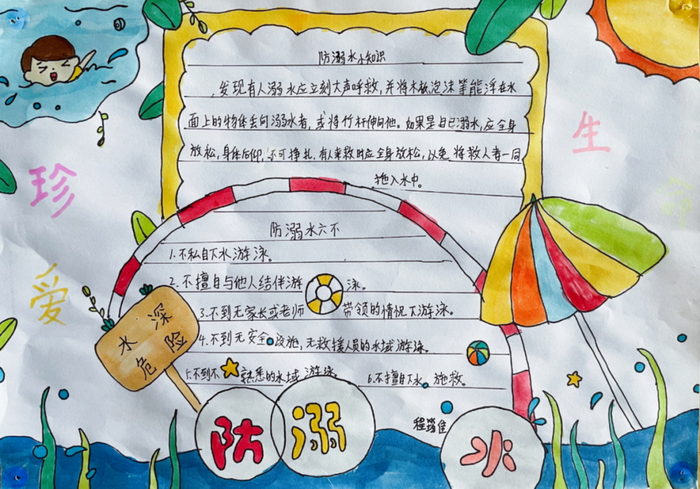 防溺水小知识
发现有人溺水应立刻大声呼救,并将木板,泡沫等能浮在水
面上的物体丢向溺水者,或将竹杆伸向他。如果是自己溺水,应全身
放松,身体后仰,不可挣扎,有人来救时应全身放松,以免将救人者一同
拖入水中。
珍
爱
生
命
防溺水六不
1.不私自下水游泳。
2.不擅自与他人结伴游泳。
3.不到无家长或老师带领的情况下游泳。
4.不到无安全设施,无救援人员的水域游泳。
5.不到不熟悉的水域游泳
6.不擅自下水施救。
水深
危险
防溺水